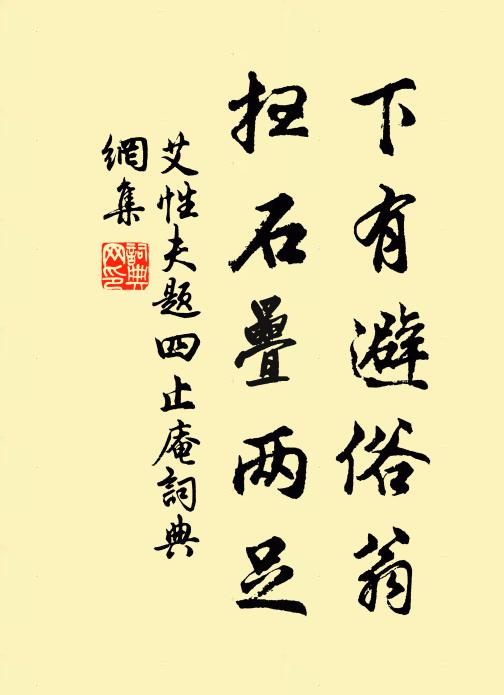 下有避俗翁
扫石疊两足
艾性夫题四止庵詞典
網集
詞典网印